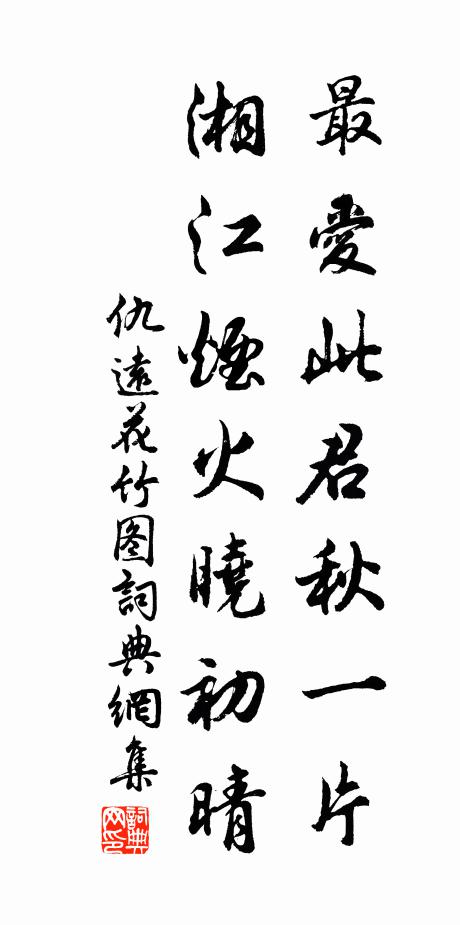 最愛此君秋一片
湘江煙火曉初晴
仇遠花竹图詞典網集
詞典网印